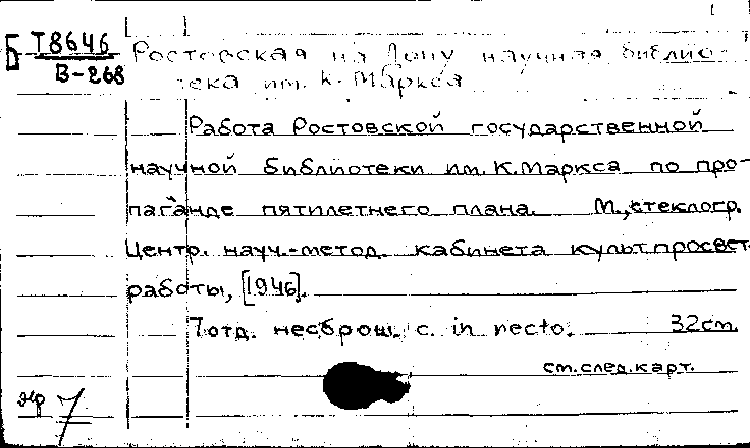 Б Т8646
В-268
Ростовская на Дону научная библио-
тека им. К. Маркса
Работа Ростовской государственной
научной библиотеки им. К. Маркса по про-
паганде пятилетнего плана. М., стеклогр.
Центр. науч.-метод. кабинета культпросвет
работы, [1946].
7 отд. несброш. с. in necto. 32 cm.
см. след. карт.
7